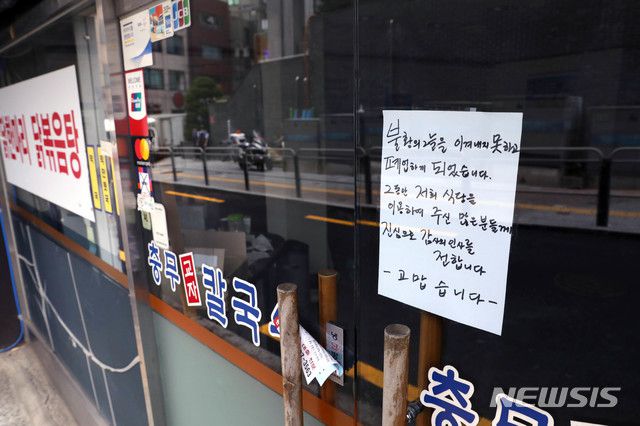 불황의 그늘을 이겨내지 못하고
폐업하게 되었습니다.
그동안 저희 식당을
이용하여 주신 많은분들께
진심으로 감사의 인사를
전합니다
- 고맙습니다 -
닭한마리 닭볶음탕
충무
칼국
충무
NEWSIS